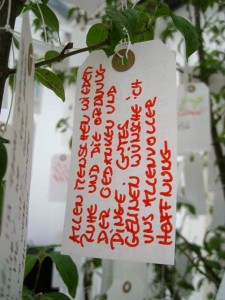 ALLEN MENSCHEN WIEDER
RUHE UND DIE ORDNUNG
DER GEDANKEN UND
DINGE. GUTES
GELINGEN WÜNSCHE ICH
UNS ALLEN VOLLER
HOFFNUNG